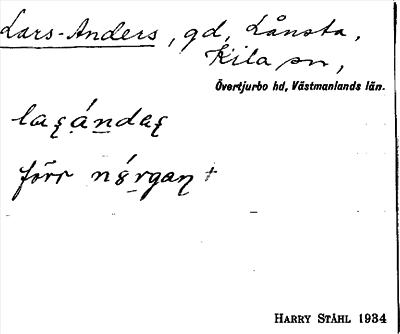 Lars-Anders, gd, Lånsta,
Kila sn,
Övertjurbo hd, Västmanlands län.
förr
HARRY STÅHL 1934